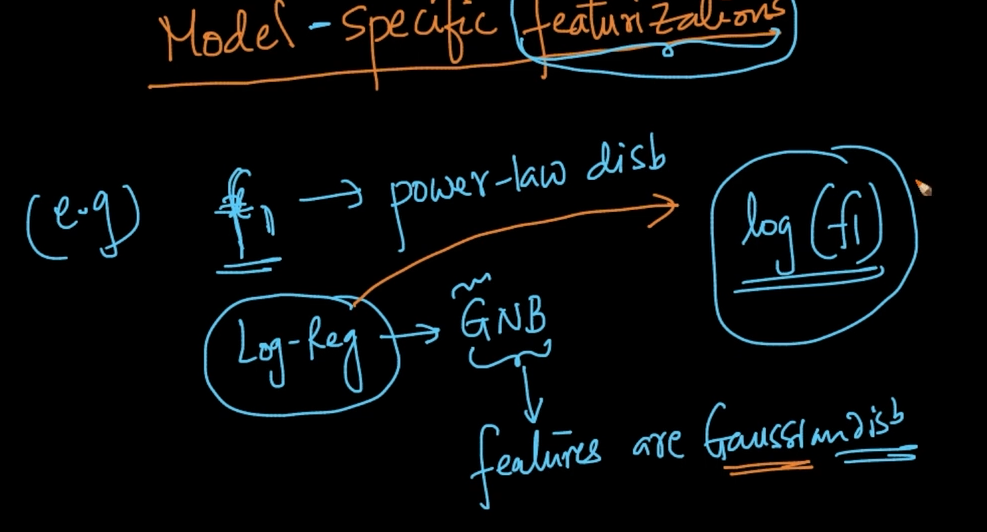 Model-Specific featurizations
(e.g) f1 → power-law disb
log (f1)
Log-Reg → GNB
features are Gaussian disb